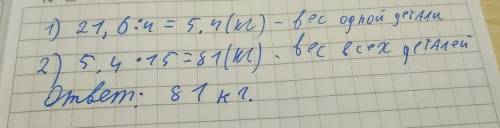 1) 21,6:4 = 5,4(кг) - вес одной детали
2) 5,4 · 15 = 81(кг) - вес всех деталей
Ответ: 81 кг.